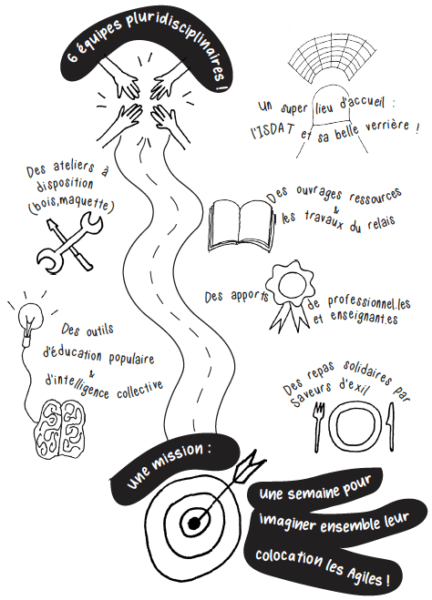 6 équipes pluridisciplinaires !
Un super lieu d'accueil :
l'ISDAT et sa belle verrière !
Des ateliers à
disposition
(bois, maquette)
Des ouvrages ressources
&
les travaux du relais
Des apports de professionnel.les
et enseignant.es
Des outils
d'éducation populaire
&
d'intelligence collective
Des repas solidaires par
Saveurs d'exil
une mission :
une semaine pour
imaginer ensemble leur
colocation les Agiles !